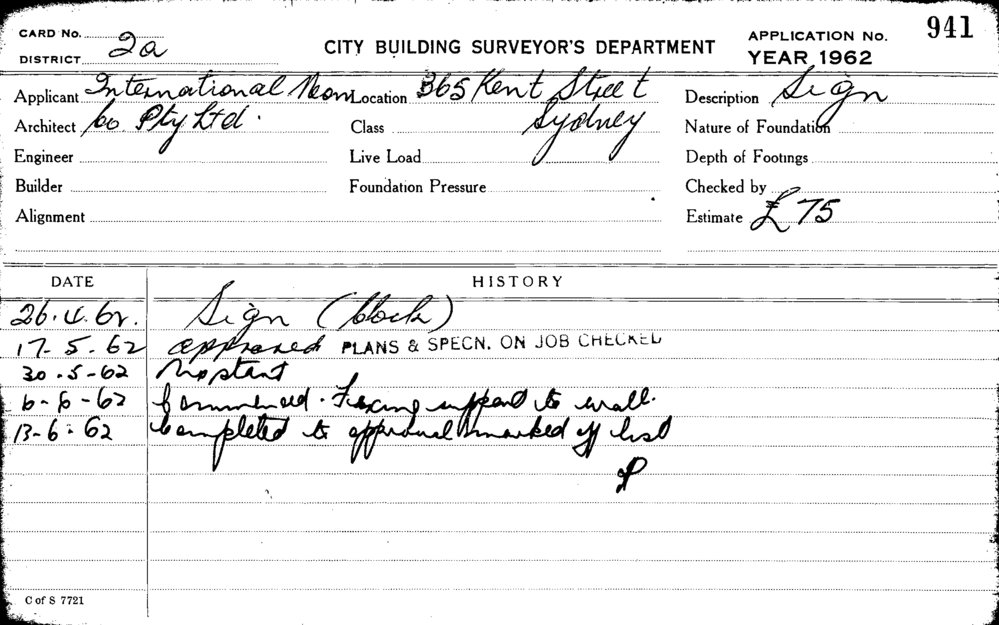 CARD No.
DISTRICT 2a
CITY BUILDING SURVEYOR'S DEPARTMENT
APPLICATION No. 941
YEAR 1962
Applicant International Neon Location 365 Kent Street Description Sign
Architect Co Pty Ltd. Class Sydney Nature of Foundation
Engineer Live Load Depth of Footings
Builder Foundation Pressure Checked by
Alignment Estimate £75
DATE HISTORY
26.4.62. Sign (Clock)
17-5-62 approved PLANS & SPECN. ON JOB CHECKED
30-5-62 No start
6-6-62 Commenced. Fixing support to wall.
13-6-62 Completed to approval marked off list
C of S 7721